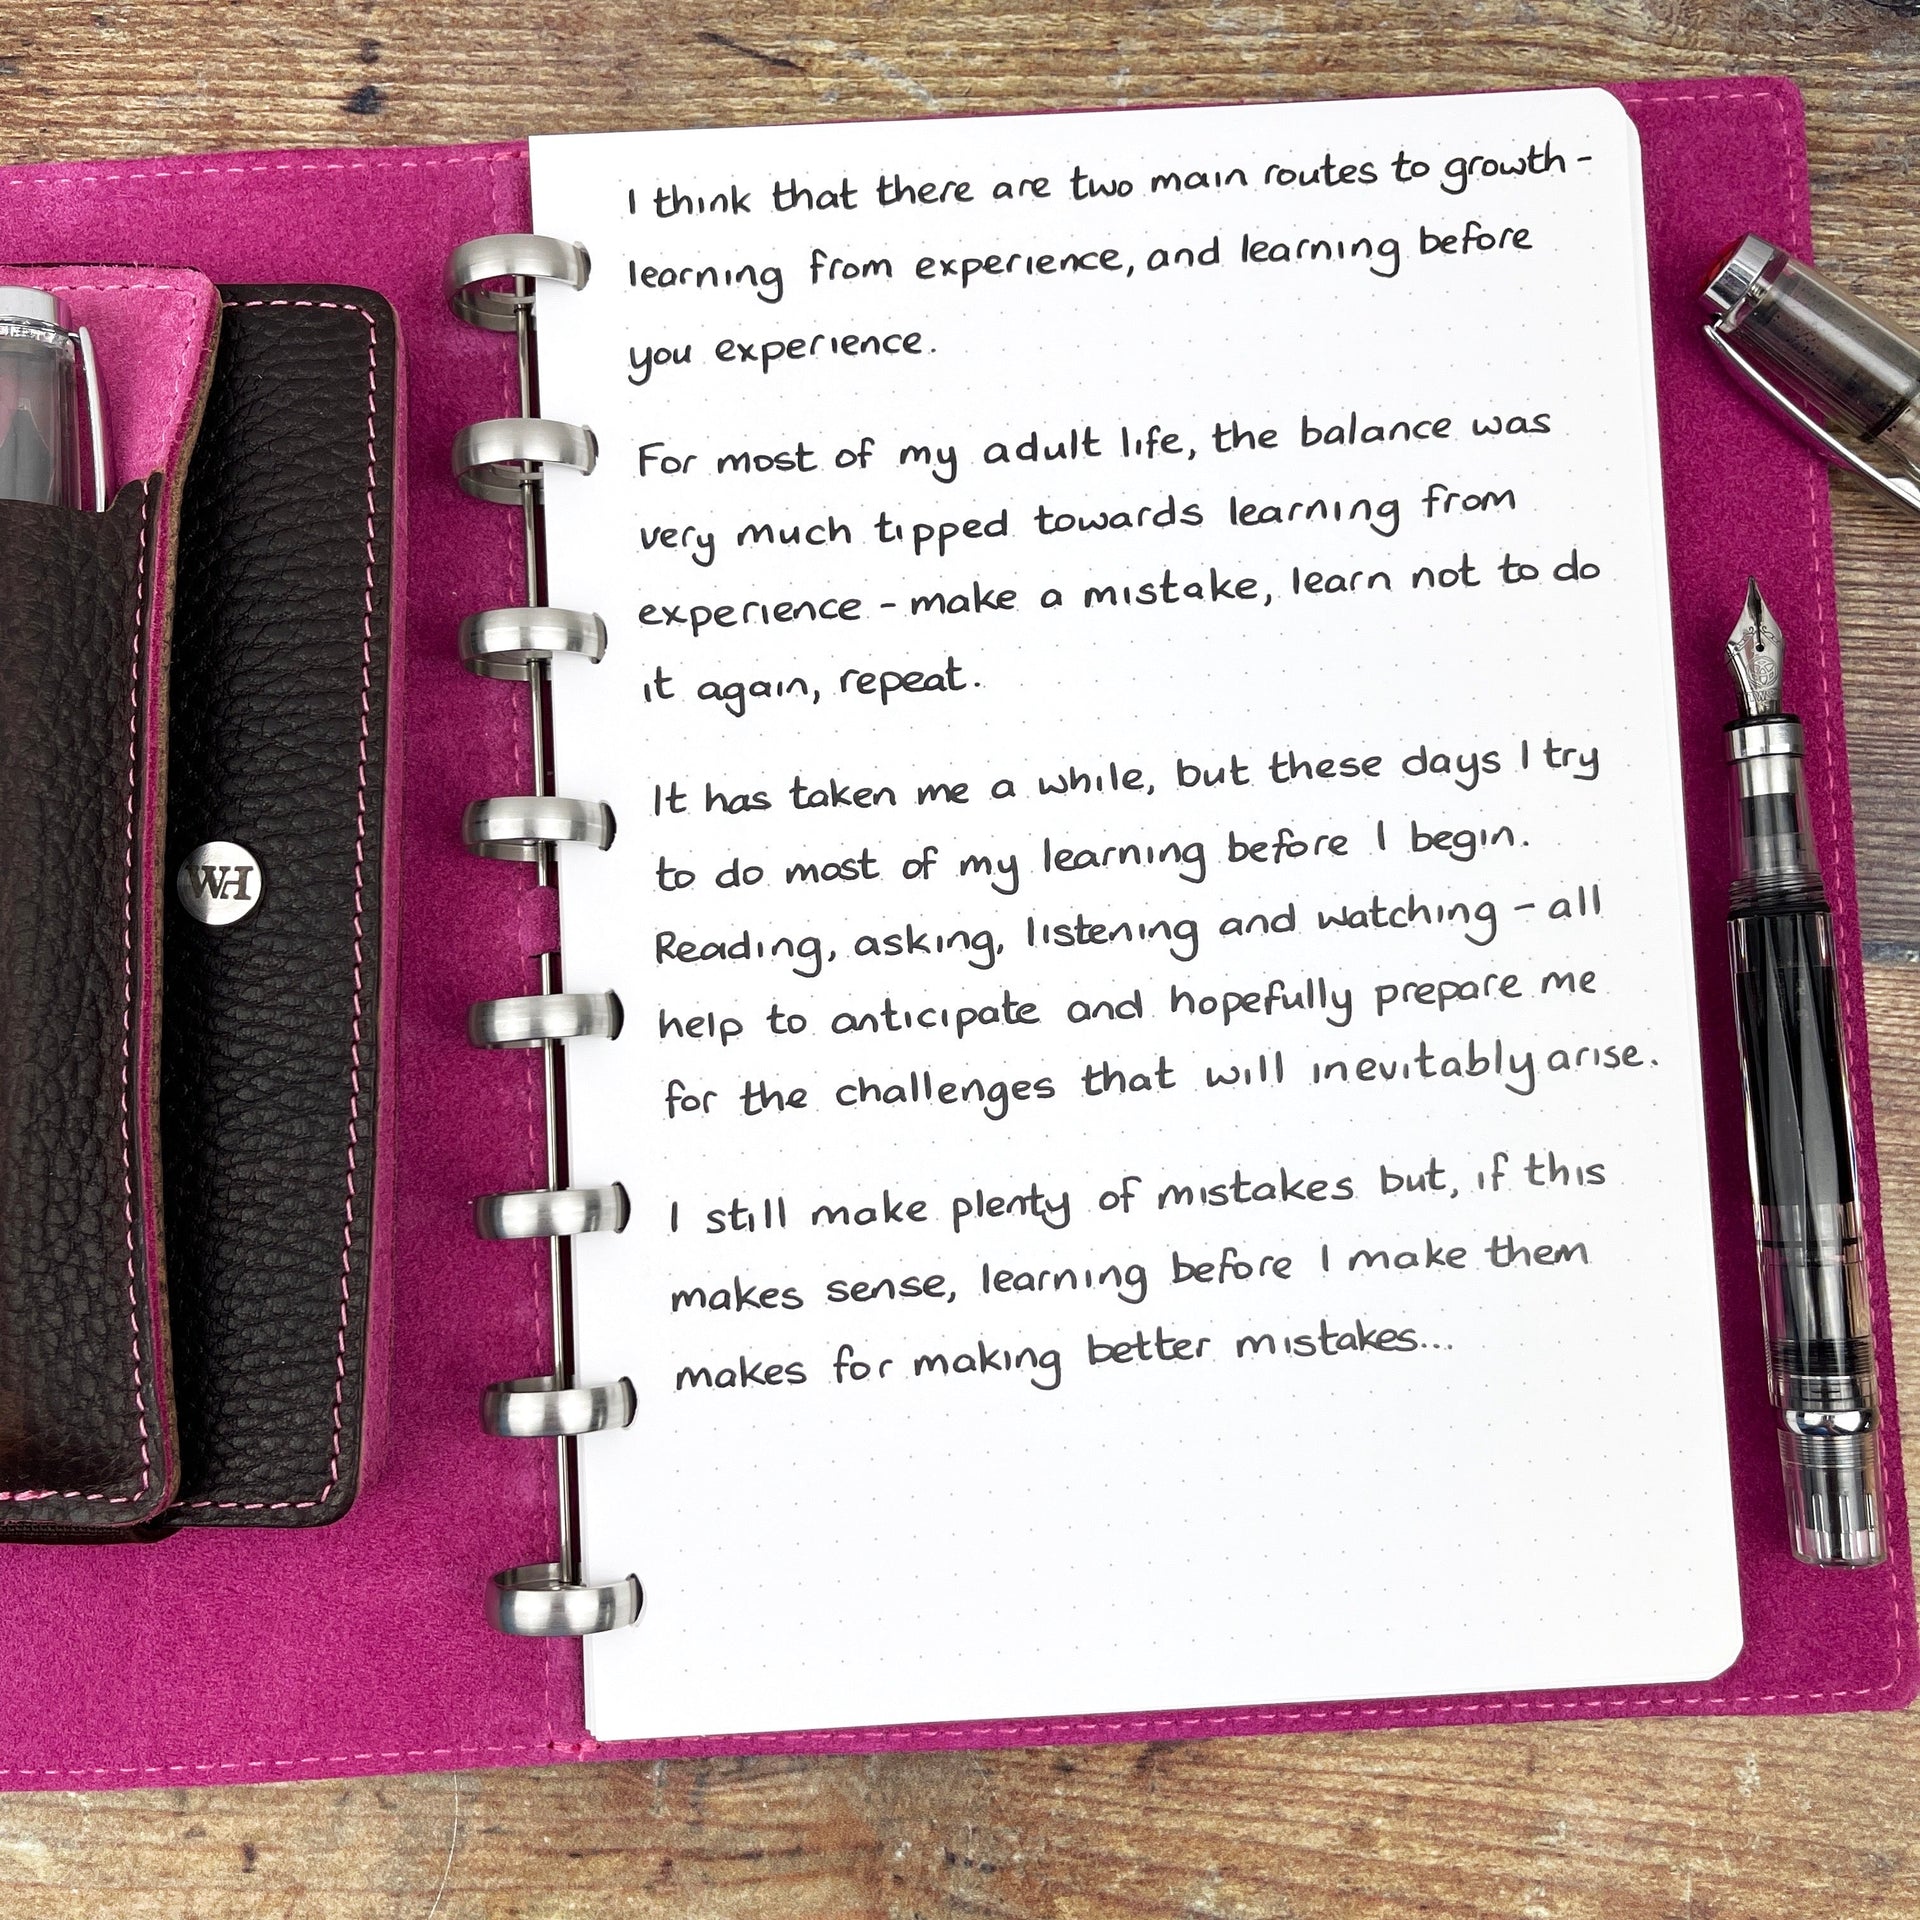 WH
I think that there are two main routes to growth -
learning from experience, and learning before
you experience.
For most of my adult life, the balance was
very much tipped towards learning from
experience - make a mistake, learn not to do
it again, repeat.
It has taken me a while, but these days I try
to do most of my learning before I begin.
Reading, asking, listening and watching - all
help to anticipate and hopefully prepare me
for the challenges that will inevitably arise.
I still make plenty of mistakes but, if this
makes sense, learning before I make them
makes for making better mistakes...